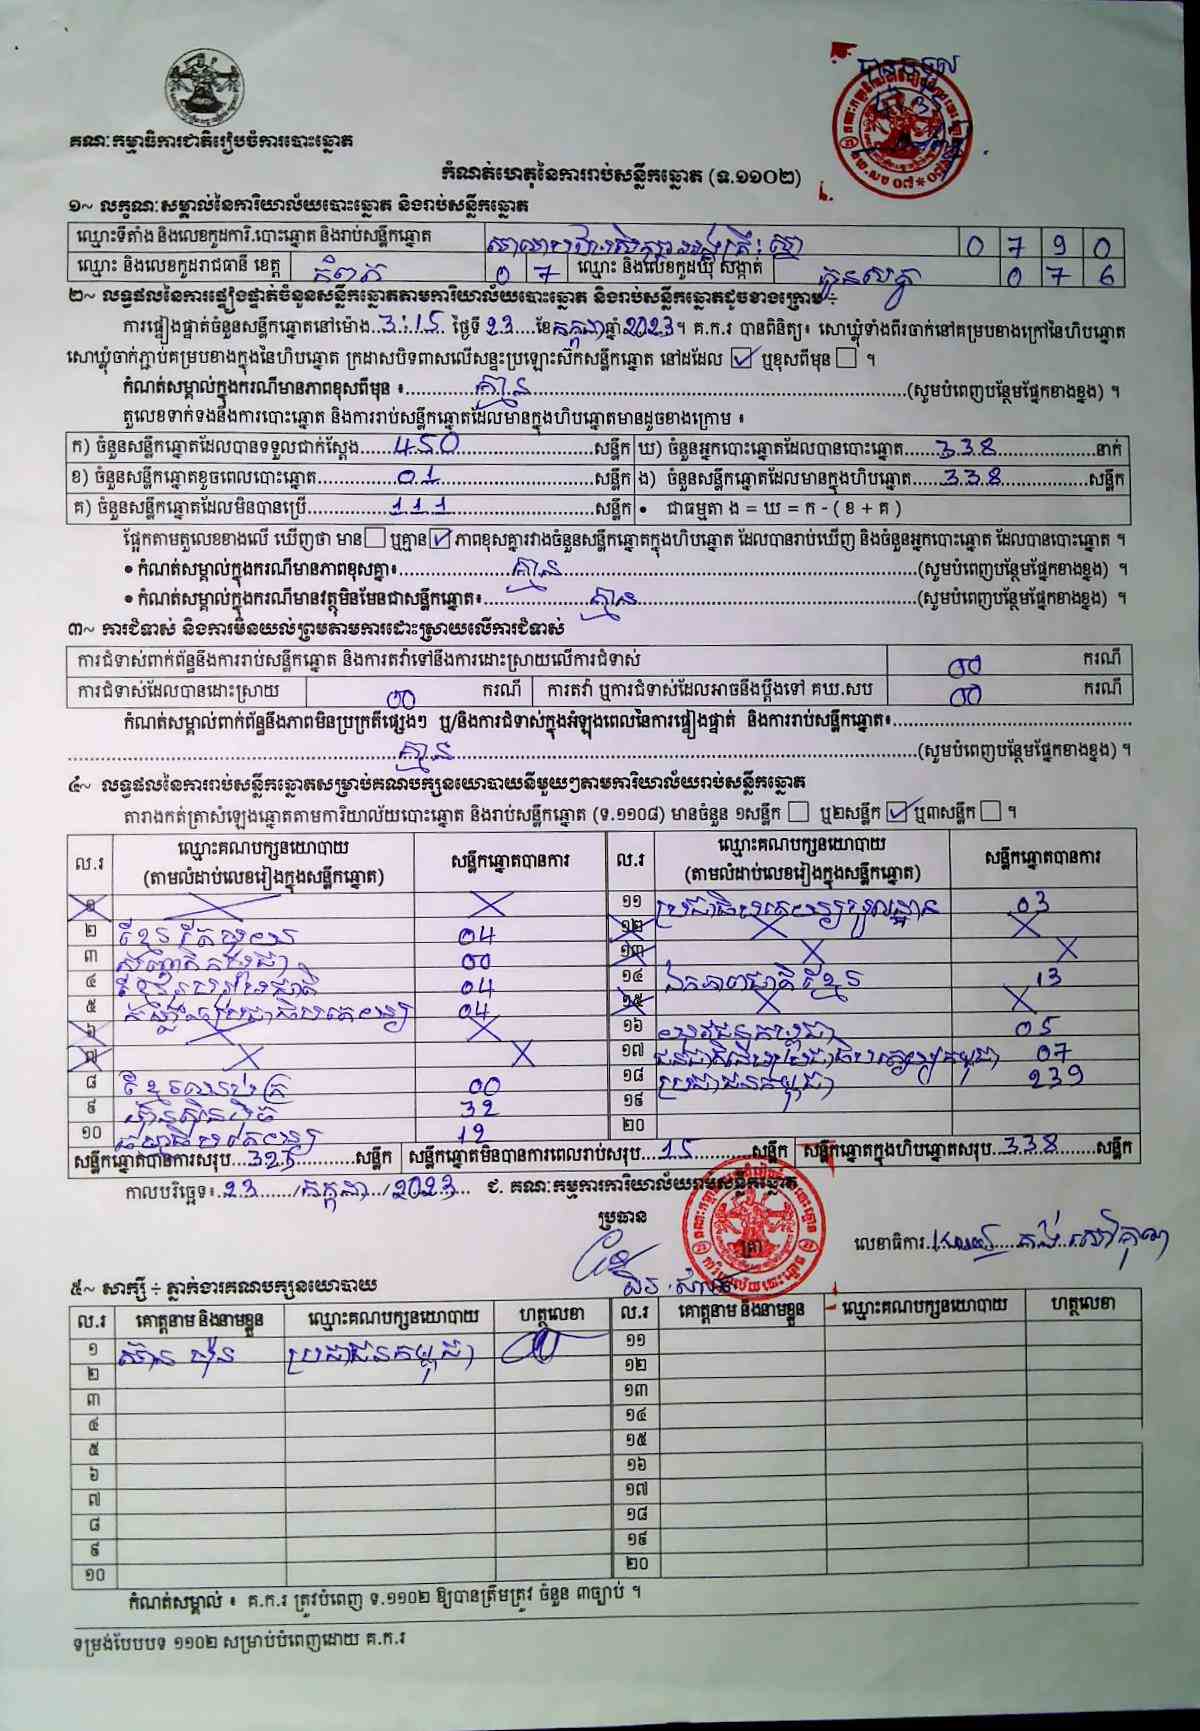 គណៈកម្មាធិការជាតិរៀបចំការបោះឆ្នោត
កំណត់ហេតុនៃការរាប់សន្លឹកឆ្នោត (ទ.១១០២)
១~ លក្ខណៈសម្គាល់នៃការិយាល័យបោះឆ្នោត និងរាប់សន្លឹកឆ្នោត
ឈ្មោះទីតាំង និងលេខកូដការិ.បោះឆ្នោត និងរាប់សន្លឹកឆ្នោត 0 7 9 0
ឈ្មោះ និងលេខកូដរាជធានី ខេត្ត កំពត 0 7 ឈ្មោះ និងលេខកូដឃុំ សង្កាត់ កូនសត្វ 0 7 6
២~ លទ្ធផលនៃការផ្ទៀងផ្ទាត់ចំនួនសន្លឹកឆ្នោតតាមការិយាល័យបោះឆ្នោត និងរាប់សន្លឹកឆ្នោតដូចខាងក្រោម ÷
ការផ្ទៀងផ្ទាត់ចំនួនសន្លឹកឆ្នោតនៅម៉ោង..3:15 ថ្ងៃទី 23 ខែកក្កដាឆ្នាំ2023។ គ.ក.រ បានពិនិត្យ៖ សោឃ្លុំទាំងពីរចាក់នៅគម្របខាងក្រៅនៃហិបឆ្នោត
សោឃ្លុំចាក់ភ្ជាប់គម្របខាងក្នុងនៃហិបឆ្នោត ក្រដាសបិទពាសលើសន្ទះប្រឡោះស៊កសន្លឹកឆ្នោត នៅដដែល ☑ ឬខុសពីមុន ☐ ។
កំណត់សម្គាល់ក្នុងករណីមានភាពខុសពីមុន ៖ គ្មាន (សូមបំពេញបន្ថែមផ្នែកខាងខ្នង) ។
តួលេខទាក់ទងនឹងការបោះឆ្នោត និងការរាប់សន្លឹកឆ្នោតដែលមានក្នុងហិបឆ្នោតមានដូចខាងក្រោម ៖
ក) ចំនួនសន្លឹកឆ្នោតដែលបានទទួលជាក់ស្តែង 450 សន្លឹក ឃ) ចំនួនអ្នកបោះឆ្នោតដែលបានបោះឆ្នោត 338 នាក់
ខ) ចំនួនសន្លឹកឆ្នោតខូចពេលបោះឆ្នោត 01 សន្លឹក ង) ចំនួនសន្លឹកឆ្នោតដែលមានក្នុងហិបឆ្នោត 338 សន្លឹក
គ) ចំនួនសន្លឹកឆ្នោតដែលមិនបានប្រើ 111 សន្លឹក • ជាធម្មតា ង = ឃ = ក - ( ខ + គ )
ផ្អែកតាមតួលេខខាងលើ ឃើញថា មាន ☐ ឬគ្មាន ☑ ភាពខុសគ្នារវាងចំនួនសន្លឹកឆ្នោតក្នុងហិបឆ្នោត ដែលបានរាប់ឃើញ និងចំនួនអ្នកបោះឆ្នោត ដែលបានបោះឆ្នោត ។
• កំណត់សម្គាល់ក្នុងករណីមានភាពខុសគ្នា៖ គ្មាន (សូមបំពេញបន្ថែមផ្នែកខាងខ្នង) ។
• កំណត់សម្គាល់ក្នុងករណីមានវត្ថុមិនមែនជាសន្លឹកឆ្នោត៖ គ្មាន (សូមបំពេញបន្ថែមផ្នែកខាងខ្នង) ។
៣~ ការជំទាស់ និងការមិនយល់ព្រមតាមការដោះស្រាយលើការជំទាស់
ការជំទាស់ពាក់ព័ន្ធនឹងការរាប់សន្លឹកឆ្នោត និងការតវ៉ាទៅនឹងការដោះស្រាយលើការជំទាស់ 00 ករណី
ការជំទាស់ដែលបានដោះស្រាយ 00 ករណី ការតវ៉ា ឬការជំទាស់ដែលអាចនឹងប្តឹងទៅ គឃ.សប 00 ករណី
កំណត់សម្គាល់ពាក់ព័ន្ធនឹងភាពមិនប្រក្រតីផ្សេងៗ ឬ/និងការជំទាស់ក្នុងអំឡុងពេលនៃការផ្ទៀងផ្ទាត់ និងការរាប់សន្លឹកឆ្នោត៖
គ្មាន (សូមបំពេញបន្ថែមផ្នែកខាងខ្នង) ។
៤~ លទ្ធផលនៃការរាប់សន្លឹកឆ្នោតសម្រាប់គណបក្សនយោបាយនីមួយៗតាមការិយាល័យរាប់សន្លឹកឆ្នោត
តារាងកត់ត្រាសំឡេងឆ្នោតតាមការិយាល័យបោះឆ្នោត និងរាប់សន្លឹកឆ្នោត (ទ.១១០៨) មានចំនួន ១សន្លឹក ☐ ឬ២សន្លឹក ☑ ឬ៣សន្លឹក ☐ ។
ល.រ ឈ្មោះគណបក្សនយោបាយ (តាមលំដាប់លេខរៀងក្នុងសន្លឹកឆ្នោត) សន្លឹកឆ្នោតបានការ ល.រ ឈ្មោះគណបក្សនយោបាយ (តាមលំដាប់លេខរៀងក្នុងសន្លឹកឆ្នោត) សន្លឹកឆ្នោតបានការ
១ ១១ ប្រជាធិបតេយ្យមូលដ្ឋាន 03
២ ខ្មែររួបរួមជាតិ 04 ១២
៣ 00 ១៣
៤ 04 ១៤ ឯកភាពជាតិខ្មែរ 13
៥ កម្លាំងប្រជាធិបតេយ្យ 04 ១៥
៦ ១៦ យុវជនកម្ពុជា 05
៧ ១៧ ជនជាតិដើមប្រជាធិបតេយ្យកម្ពុជា 07
៨ ខ្មែរឈប់ក្រ 00 ១៨ ប្រជាជនកម្ពុជា 239
៩ ហ្វ៊ុនស៊ិនប៉ិច 32 ១៩
១០ 12 ២០
សន្លឹកឆ្នោតបានការសរុប 323 សន្លឹក សន្លឹកឆ្នោតមិនបានការពេលរាប់សរុប 15 សន្លឹក សន្លឹកឆ្នោតក្នុងហិបឆ្នោតសរុប 338 សន្លឹក
កាលបរិច្ឆេទ៖ 23 / កក្កដា / 2023 ជ. គណៈកម្មការការិយាល័យរាប់សន្លឹកឆ្នោត
ប្រធាន
លេខាធិការ
៥~ សាក្សី ÷ ភ្នាក់ងារគណបក្សនយោបាយ
ល.រ គោត្តនាម និងនាមខ្លួន ឈ្មោះគណបក្សនយោបាយ ហត្ថលេខា ល.រ គោត្តនាម និងនាមខ្លួន ឈ្មោះគណបក្សនយោបាយ ហត្ថលេខា
១ ប្រជាជនកម្ពុជា ១១
២ ១២
៣ ១៣
៤ ១៤
៥ ១៥
៦ ១៦
៧ ១៧
៨ ១៨
៩ ១៩
១០ ២០
កំណត់សម្គាល់ ៖ គ.ក.រ ត្រូវបំពេញ ទ.១១០២ ឱ្យបានត្រឹមត្រូវ ចំនួន ៣ច្បាប់ ។
ទម្រង់បែបបទ ១១០២ សម្រាប់បំពេញដោយ គ.ក.រ